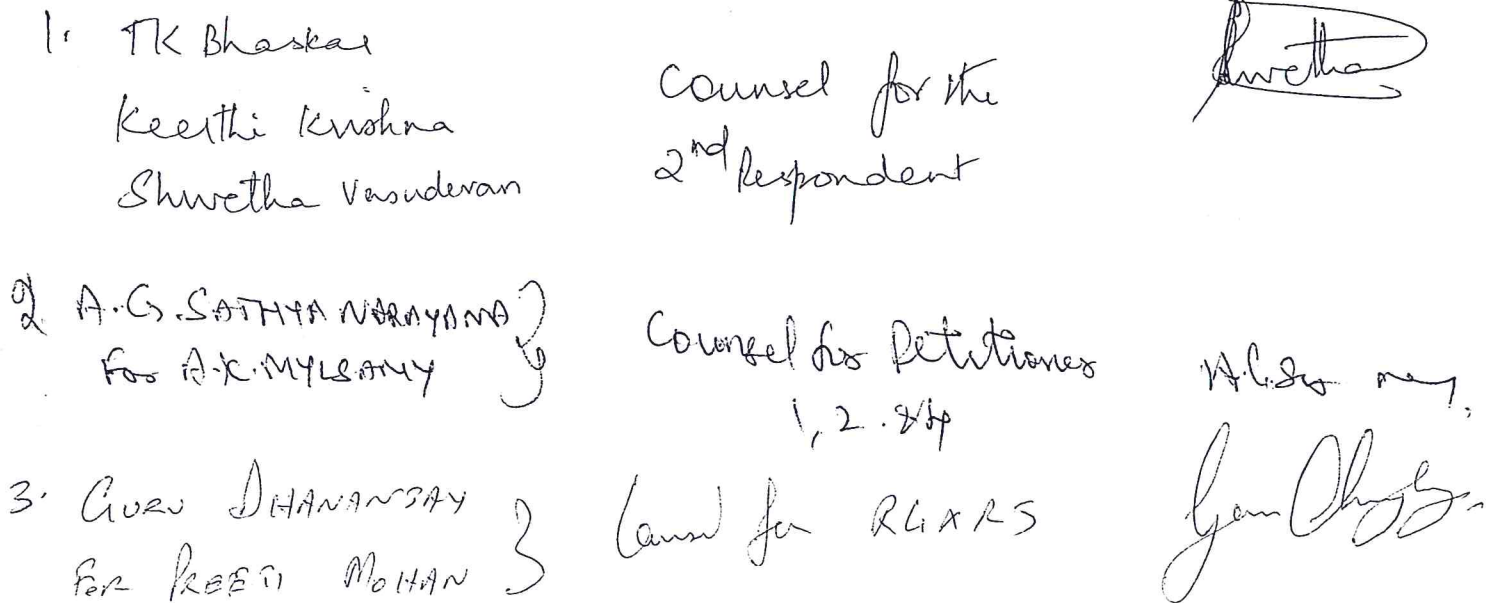 1. TK Bhaskar
Keerthi Krishna
Shwetha Vasudevan
Counsel for the
2nd Respondent
Shwetha
2 A.G. SATHYA NARAYANA
For A.K. MYLSAMY
Counsel for Petitioner
1, 2. &
3. GURU DHANANJAY
FOR PREETI MOHAN
Counsel for R4 & R5